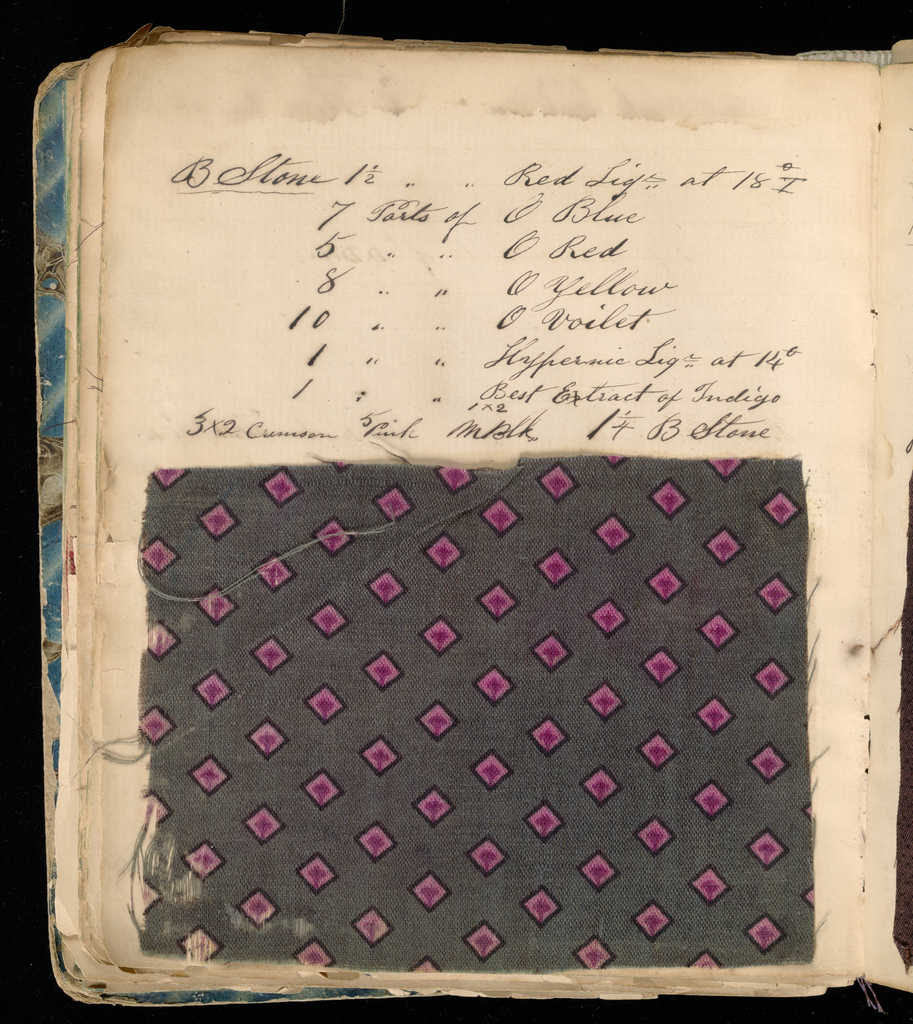 B Stone 1½ " " Red Liqr at 18° T
7 Parts of O Blue
5 " " O Red
8 " " O Yellow
10 " " O Voilet
1 " " Hypernic Liqr at 14°
1 " " Best Extract of Indigo
1x2
3x2 Crimson 5 Pink MBlk 1¼ B Stone